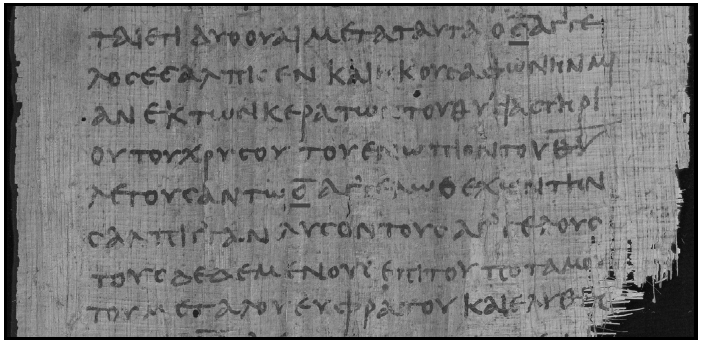 ΤΑΙΕΤΙ ΔΥΟΟΥΑΙ ΜΕΤΑΤΑΥΤΑ Ο Ϛ̅ ΑΓΓΕ
ΛΟϹΕϹΑΛΠΙϹΕΝ ΚΑΙΗΚΟΥϹΑΦΩΝΗΝΜΙ
ΑΝ ΕΚΤΩΝΚΕΡΑΤΩΝΤΟΥΘΥϹΙΑϹΤΗΡΙ
ΟΥΤΟΥΧΡΥϹΟΥ ΤΟΥΕΝΩΠΙΟΝΤΟΥΘ̅Υ̅
ΛΕΓΟΥϹΑΝΤΩ Ϛ̅ ΑΓΓΕΛΩΟΕΧΩΝΤΗΝ
ϹΑΛΠΙΓΓΑΝ ΛΥϹΟΝΤΟΥϹΑΓΓΕΛΟΥϹ
ΤΟΥϹΔΕΔΕΜΕΝΟΥϹ ΕΠΙΤΟΥΠΟΤΑΜΟΥ
ΤΟΥΜΕΓΑΛΟΥΕΥΦΡΑΤΟΥ ΚΑΙΕΛΥΘΗϹ